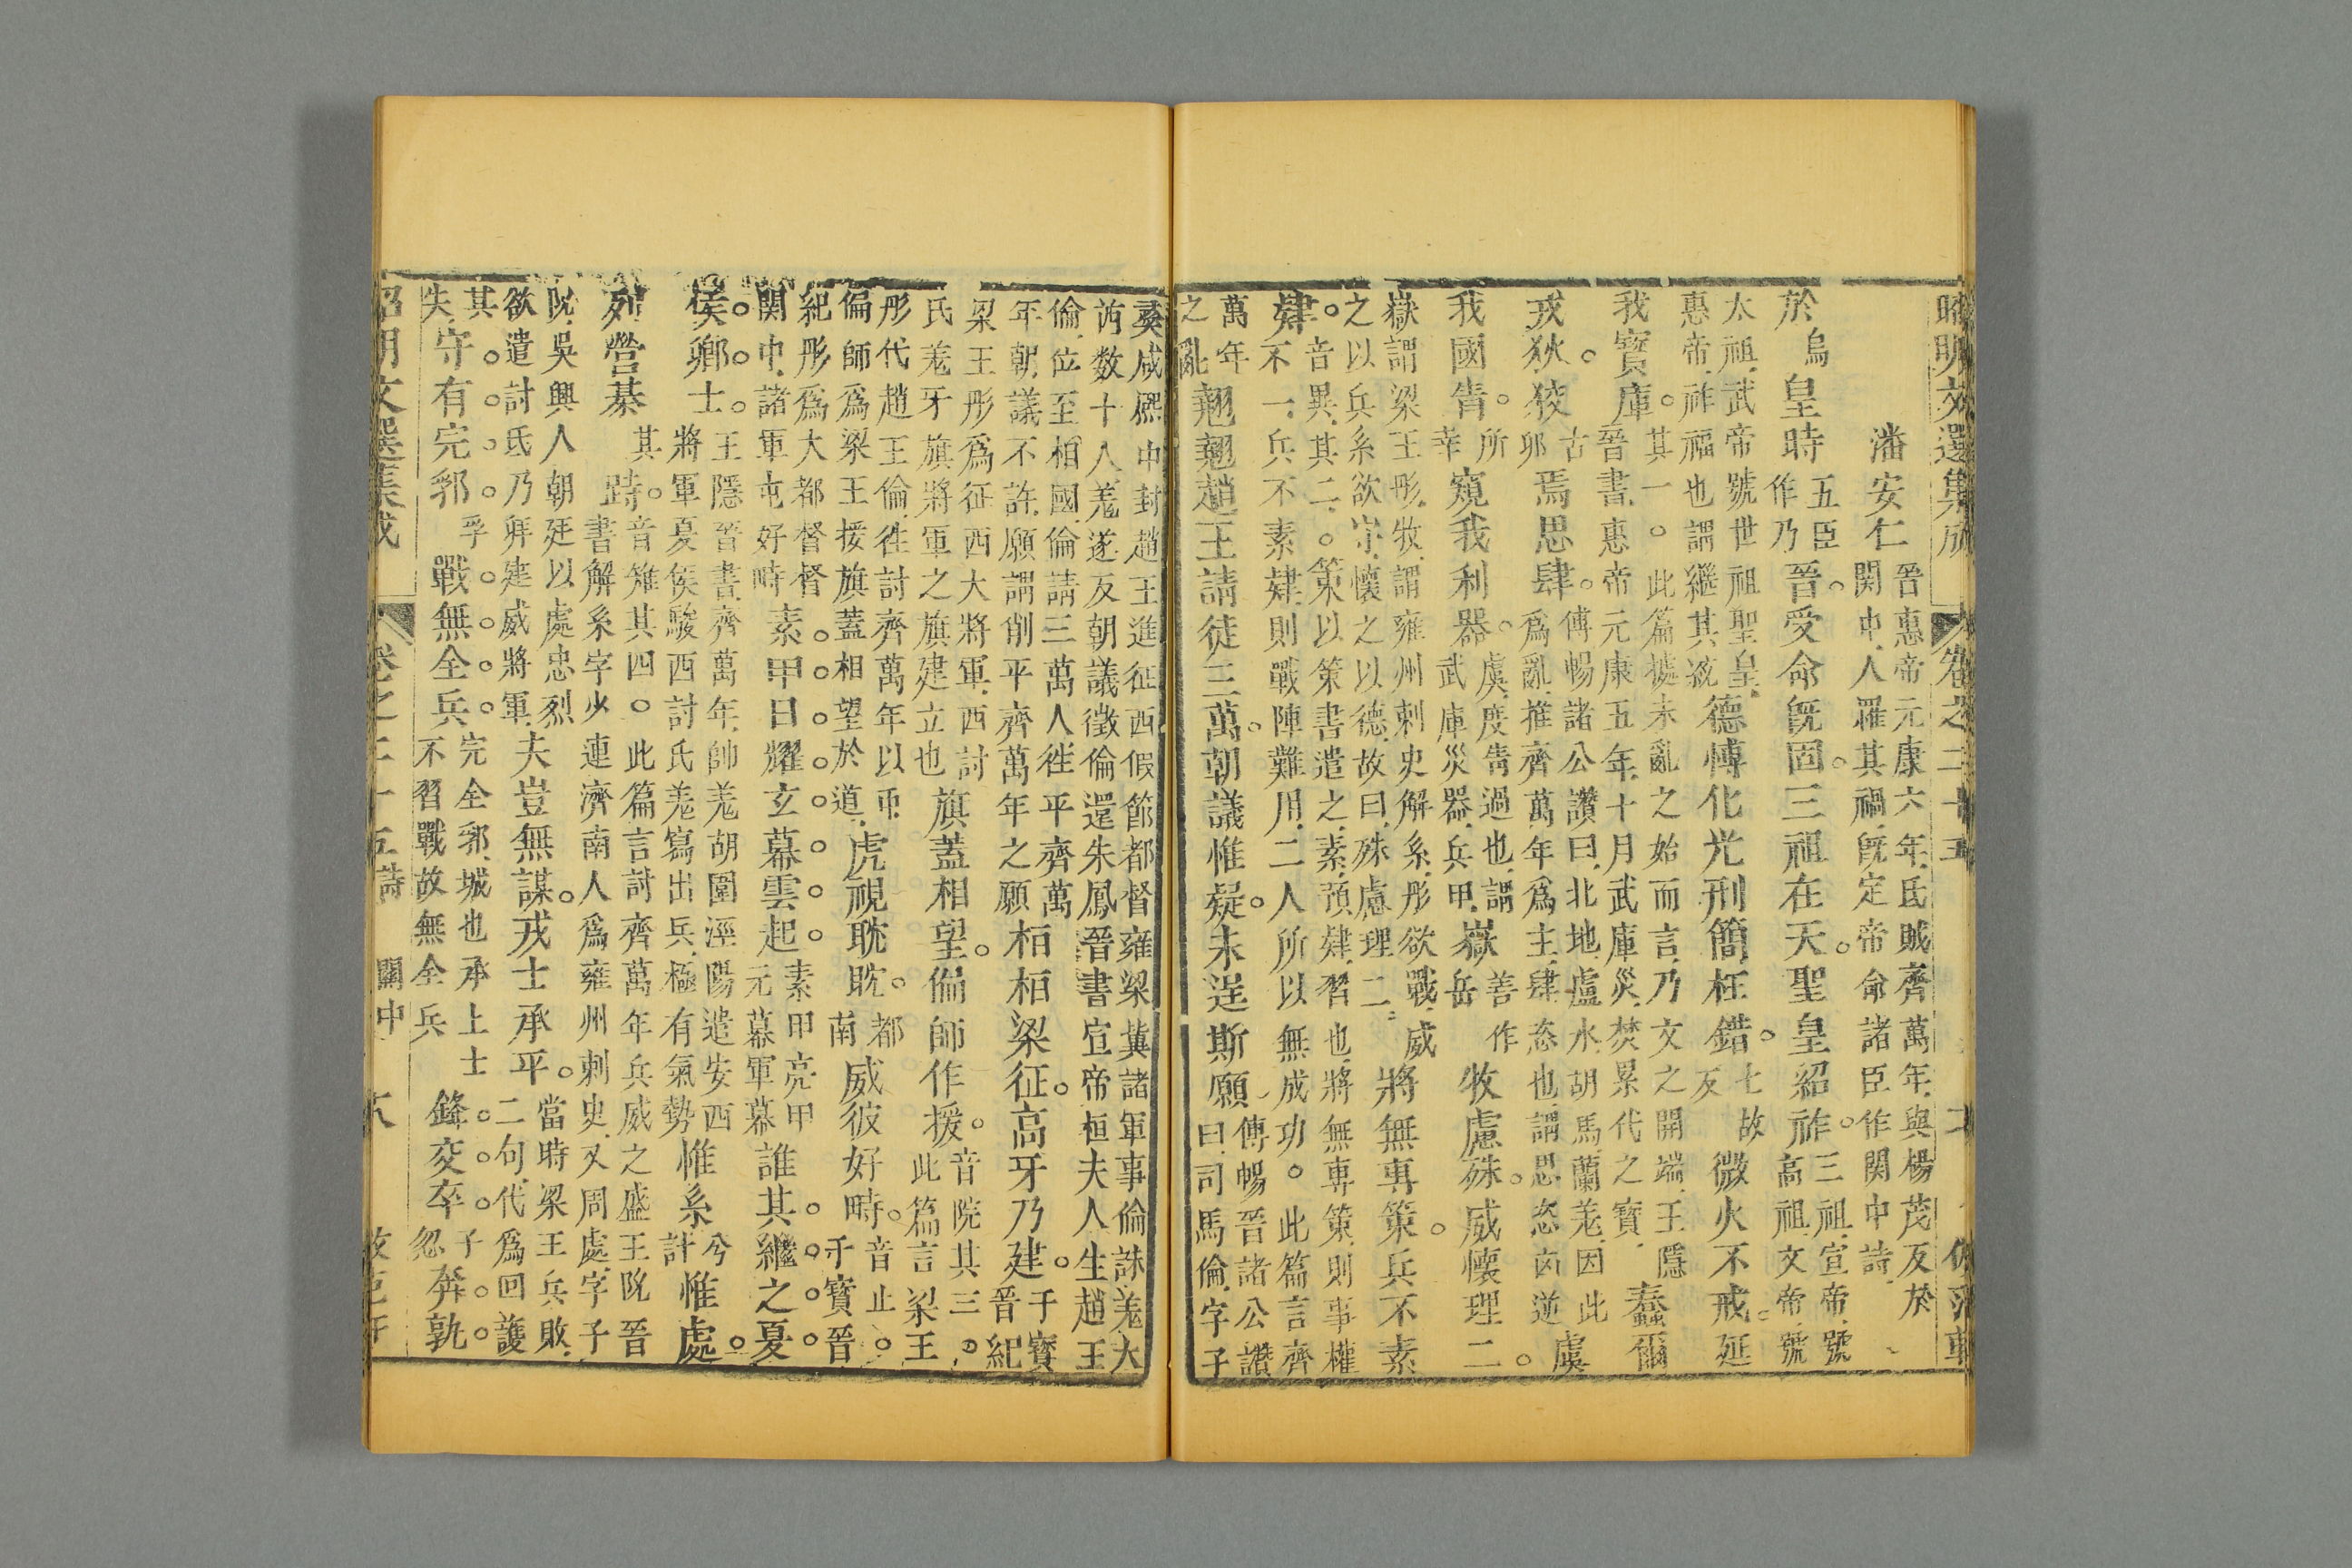 昭明文選集成 卷之二十五
潘安仁
晉惠帝元康六年氐賊齊萬年與楊茂反於
関中人罹其禍既定帝命諸臣作関中詩
於烏皇時
五臣
作乃
晉受命既固三祖在天聖皇紹祚
三祖宣帝號
高祖文帝號
太祖武帝號世祖聖皇
惠帝祚福也謂繼其祚
德博化光刑簡枉錯
七故
反
微火不戒延
我寶庫
其一。此篇據未亂之始而言乃文之開端王隱
晉書惠帝元康五年十月武庫災焚累代之寶
蠢爾
戎狄狡
古
卯
焉思肆
傅暢諸公讚曰北地盧水胡馬蘭羌因此
為亂推齊萬年為主肆恣也謂思恣凶逆
虞
我國眚
所
幸
窺我利器
虞度眚過也謂
武庫災器兵甲
嶽
善作
岳
牧慮殊威懷理二
嶽謂梁王肜牧謂雍州刺史解系肜欲戰威
之以兵系欲守懷之以德故曰殊慮理二
將無專策兵不素
肄
音異其二。策以策書遣之素預肄習也將無專策則事權
不一兵不素肄則戰陣難用二人所以無成功。此篇言齊
萬年
之亂
翹翹趙王請徒三萬朝議惟疑未逞斯願
傅暢晉諸公讚
曰司馬倫字子
彞咸熙中封趙王進征西假節都督雍梁冀諸軍事倫誅羌大
芮數十八羌遂反朝議徵倫還朱鳳晉書宣帝桓夫人生趙王
倫位至相國倫請三萬人徃平齊萬
年朝議不許願謂削平齊萬年之願
桓桓梁征高牙乃建
于寶
晉紀
梁王肜為征西大將軍西討
氐羌牙旗將軍之旗建立也
旗蓋相望偏師作援
音院其三。
此篇言梁王
肜代趙王倫徃討齊萬年以
偏師為梁王援旗蓋相望於道
虎視耽耽
都
南
威彼好畤
音止。
干寶晉
紀肜為大都督督
関中諸軍屯好畤
素甲日耀玄幕雲起
素甲亮甲
元幕軍幕
誰其繼之夏
侯卿士
王隱晉書齊萬年帥羌胡圍涇陽遣安西
將軍夏侯駿西討氐羌寫出兵極有氣勢
惟系
兮
計
惟處
列營棊
其
跱
音雉其四。此篇言討齊萬年兵威之盛王阮晉
書解系字少連濟南人為雍州刺史又周處字子
阮吳興人朝廷以處忠烈
欲遣討氐乃拜建威將軍
夫豈無謀戎士承平
當時梁王兵敗
二句代為回護
其
失
守有完郛
孚
戰無全兵
完全郛城也承上士
不習戰故無全兵
鋒交卒
子
忽
奔孰
昭明文選集成 卷之二十五 詩 関中 六